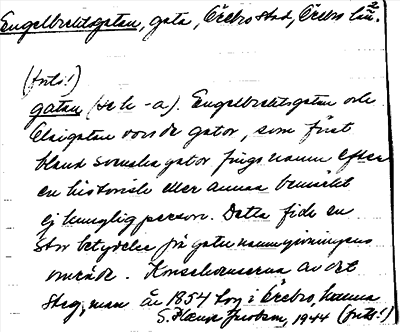 Engelbrektsgatan, gata, Örebro stad, Örebro län. 2
(forts!)
gatan (sek -a). Engelbrektsgatan och
Olaigatan voro de gator, som först
bland svenska gator fingo namn efter
en historisk eller annan bemärkt
ej kunglig person. Detta fick en
stor betydelse på gatunamngivningens
område. Konsekvenserna av det
steg, man år 1854 tog i Örebro, kunna
S. 1944 (forts!)